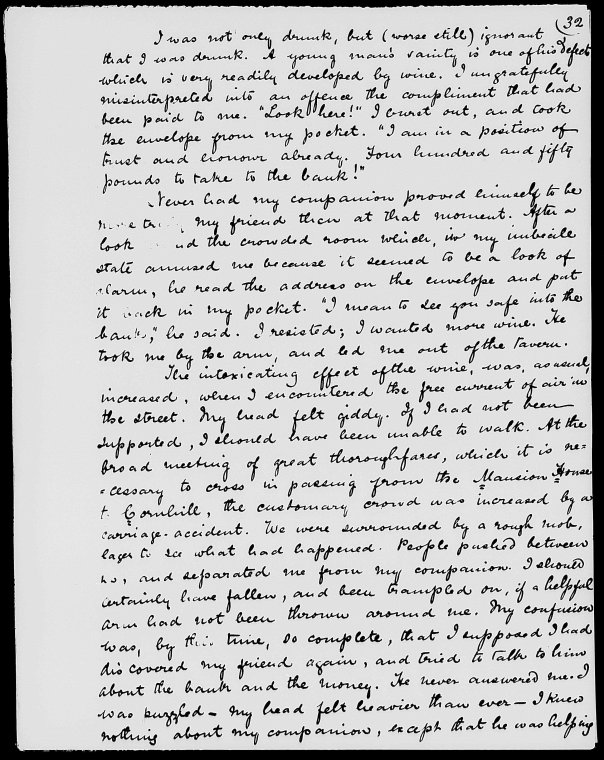 32
I was not only drunk, but (worse still) ignorant
that I was drunk. A young man's vanity is one of his defects
which is very readily developed by wine. I ungratefully
misinterpreted into an offence the compliment that had
been paid to me. "Look here!" I burst out, and took
the envelope from my pocket. "I am in a position of
trust and honour already. Four hundred and fifty
pounds to take to the bank!"
Never had my companion proved himself to be
my friend than at that moment. After a
look the crowded room which, in my imbecile
state amused me because it seemed to be a look of
alarm, he read the address on the envelope and put
it back in my pocket. "I mean to see you safe into the
bank," he said. I resisted; I wanted more wine. He
took me by the arm, and led me out of the tavern.
The intoxicating effect of the wine, was, as usual,
increased, when I encountered the free current of air in
the street. My head felt giddy. If I had not been
supported, I should have been unable to walk. At the
broad meeting of great thoroughfares, which it is ne=
=cessary to cross in passing from the Mansion House
t. Cornhill, the customary crowd was increased by a
carriage-accident. We were surrounded by a rough mob,
eager to see what had happened. People pushed between
us, and separated me from my companion. I should
certainly have fallen, and been trampled on, if a helpful
arm had not been thrown around me. My confusion
was, by this time, so complete, that I supposed I had
discovered my friend again, and tried to talk to him
about the bank and the money. He never answered me. I
was puzzled – my head felt heavier than ever – I knew
nothing about my companion, except that he was helping